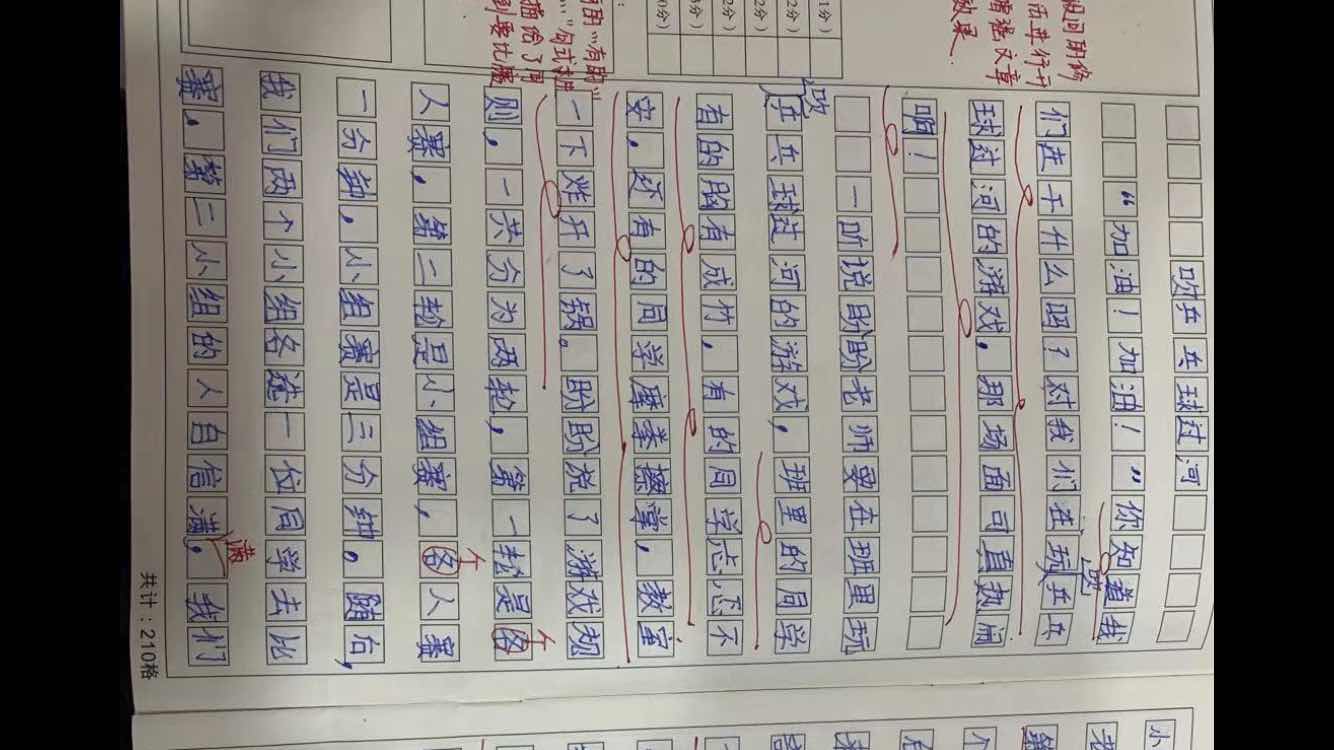 吹乒乓球过河
“加油！加油！”你知道我
们在干什么吗？对我们在玩吹乒乓
球过河的游戏，那场面可真热闹
啊！
一听说盼盼老师要在班里玩
吹乒乓球过河的游戏，班里的同学
有的胸有成竹，有的同学忐忑不
安，还有的同学摩拳擦掌，教室
一下炸开了锅。盼盼说了游戏规
则，一共分为两轮，第一轮是个
人赛，第二轮是小组赛，个人赛
一分钟，小组赛是三分钟。随后，
我们两个小组各选一位同学去比
赛，第二小组的人自信满满，我们
共计：210格
设问明修
增强文章
效果
有的
句式
描绘了同
到要比赛
1分）
2分）
2分）
2分）